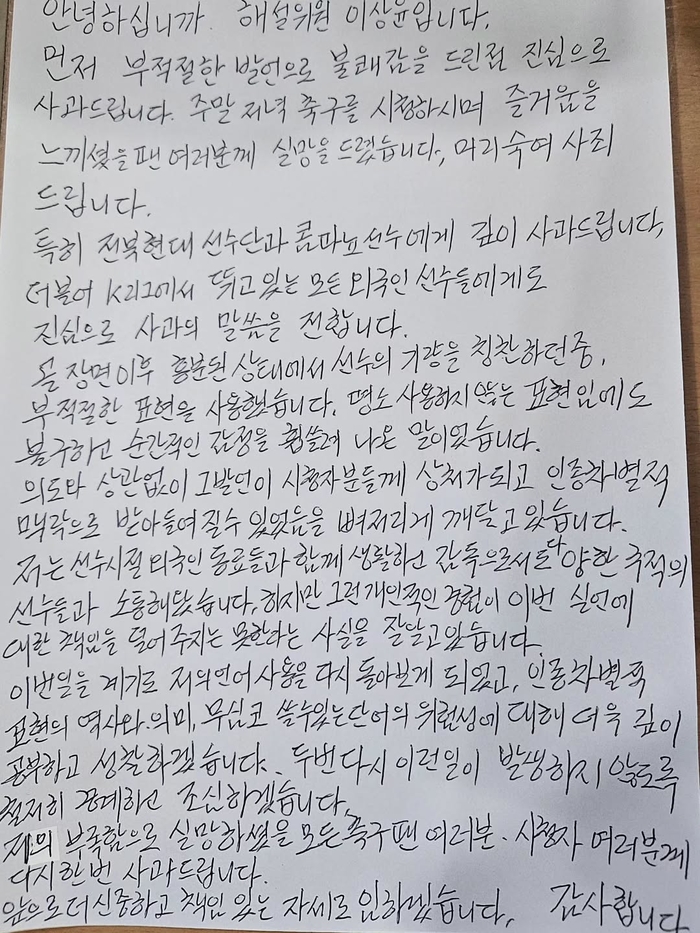 안녕하십니까. 해설위원 이상윤입니다.
먼저 부적절한 발언으로 불쾌감을 드린점 진심으로
사과드립니다. 주말 저녁 축구를 시청하시며 즐거움을
느끼셨을 팬 여러분께 실망을 드렸습니다, 머리숙여 사죄
드립니다.
특히 전북현대 선수단과 콤파뇨선수에게 깊이 사과드립니다,
더불어 K리그에서 뛰고 있는 모든 외국인 선수들에게도
진심으로 사과의 말씀을 전합니다.
골 장면이후 흥분된 상태에서 선수의 기량을 칭찬하던중,
부적절한 표현을 사용했습니다. 평소 사용하지 않는 표현임에도
불구하고 순간적인 감정을 휩쓸려 나온 말이었습니다.
의도와 상관없이 그발언이 시청자분들께 상처가되고 인종차별적
맥락으로 받아들여질수 있었음을 뼈저리게 깨닫고 있습니다.
저는 선수시절 외국인 동료들과 함께 생활하고 감독으로서도 다양한 국적의
선수들과 소통해왔습니다, 하지만 그런 개인적인 경험이 이번 실언에
대한 책임을 덜어 주지는 못한다는 사실을 잘알고있습니다.
이번일을 계기로 저의언어 사용을 다시 돌아보게 되었고, 인종차별적
표현의 역사와 의미, 무심코 쓸수있는단어의 위험성에 대해 더욱 깊이
공부하고 성찰하겠습니다. 두번다시 이런일이 발생하지 않도록
철저히 경계하고 조심하겠습니다,
저의 부족함으로 실망하셨을 모든축구팬 여러분. 시청자 여러분께
다시한번 사과드립니다.
앞으로 더 신중하고 책임 있는 자세로 임하겠습니다, 감사합니다